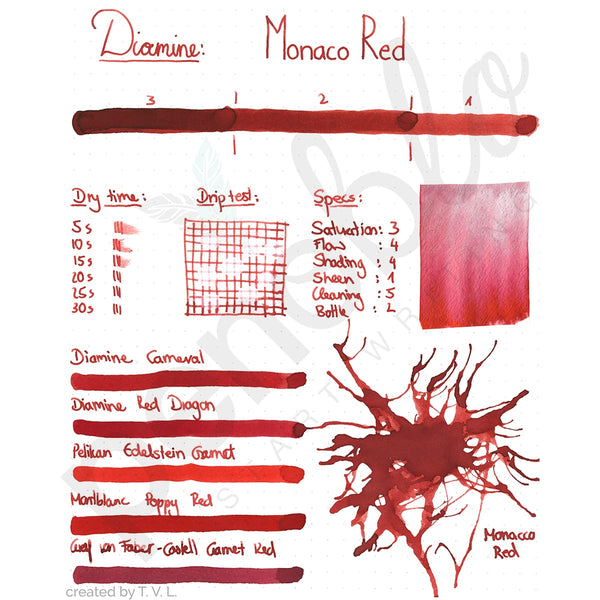 Diamine: Monaco Red
3 2 1
Dry time: Driptest: Specs:
5s
10s
15s
20s
25s
30s
Satuation: 3
Flow : 4
Shading : 4
Sheen : 1
Cleaning : 5
Bottle : 2
Diamine Carneval
Diamine Red Dragon
Pelikan Edelstein Garnet
Montblanc Poppy Red
Graf von Faber-Castell Garnet Red
Monacco
Red
created by T. V. L.